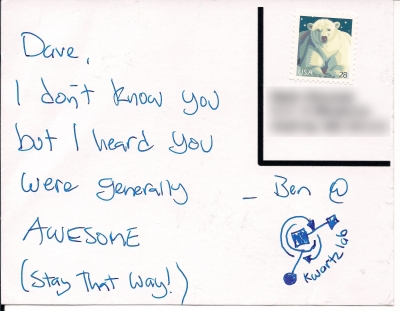 Dave,
I don't know you
but I heard you
were generally
AWESOME
(Stay That Way!)
- Ben @
kwartzlab
USA 28